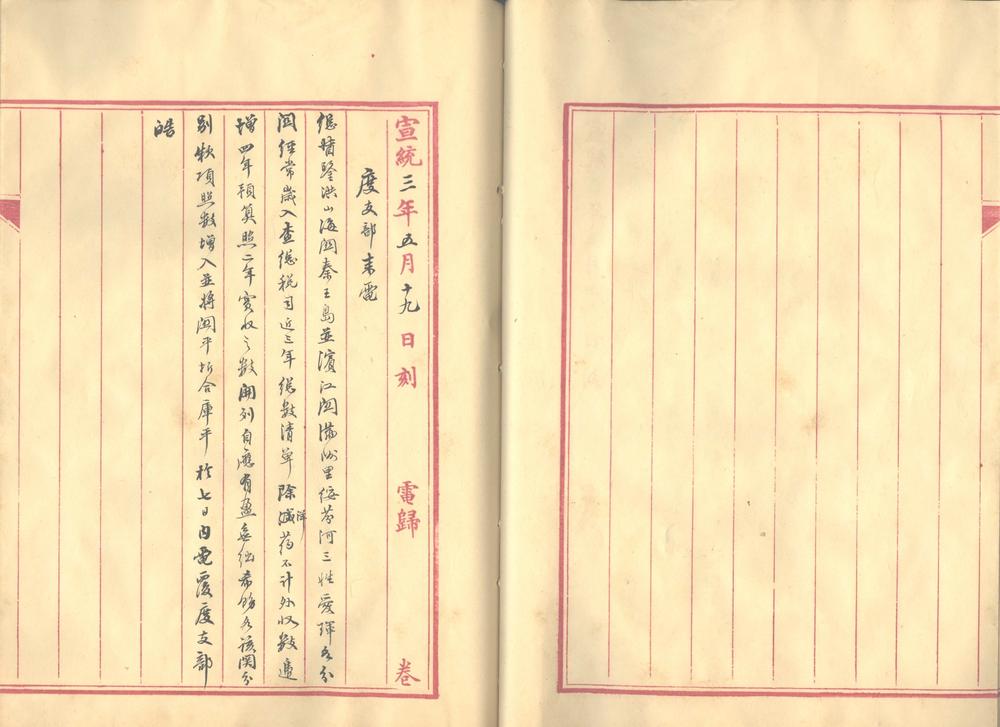 宣統三年五月十九日刻 電歸 卷
度支部來電
總督鑒洪山海關秦王島並濱江關滿洲里綏芬河三姓愛琿各分
關經常歲入查總稅司近三年總數清單除減洋药不計外收數遞
增四年預算照二年實收之數開列自應有盈無絀希飭各該關分
別款項照數增入並將關平折合庫平於七日內電覆度支部
皓